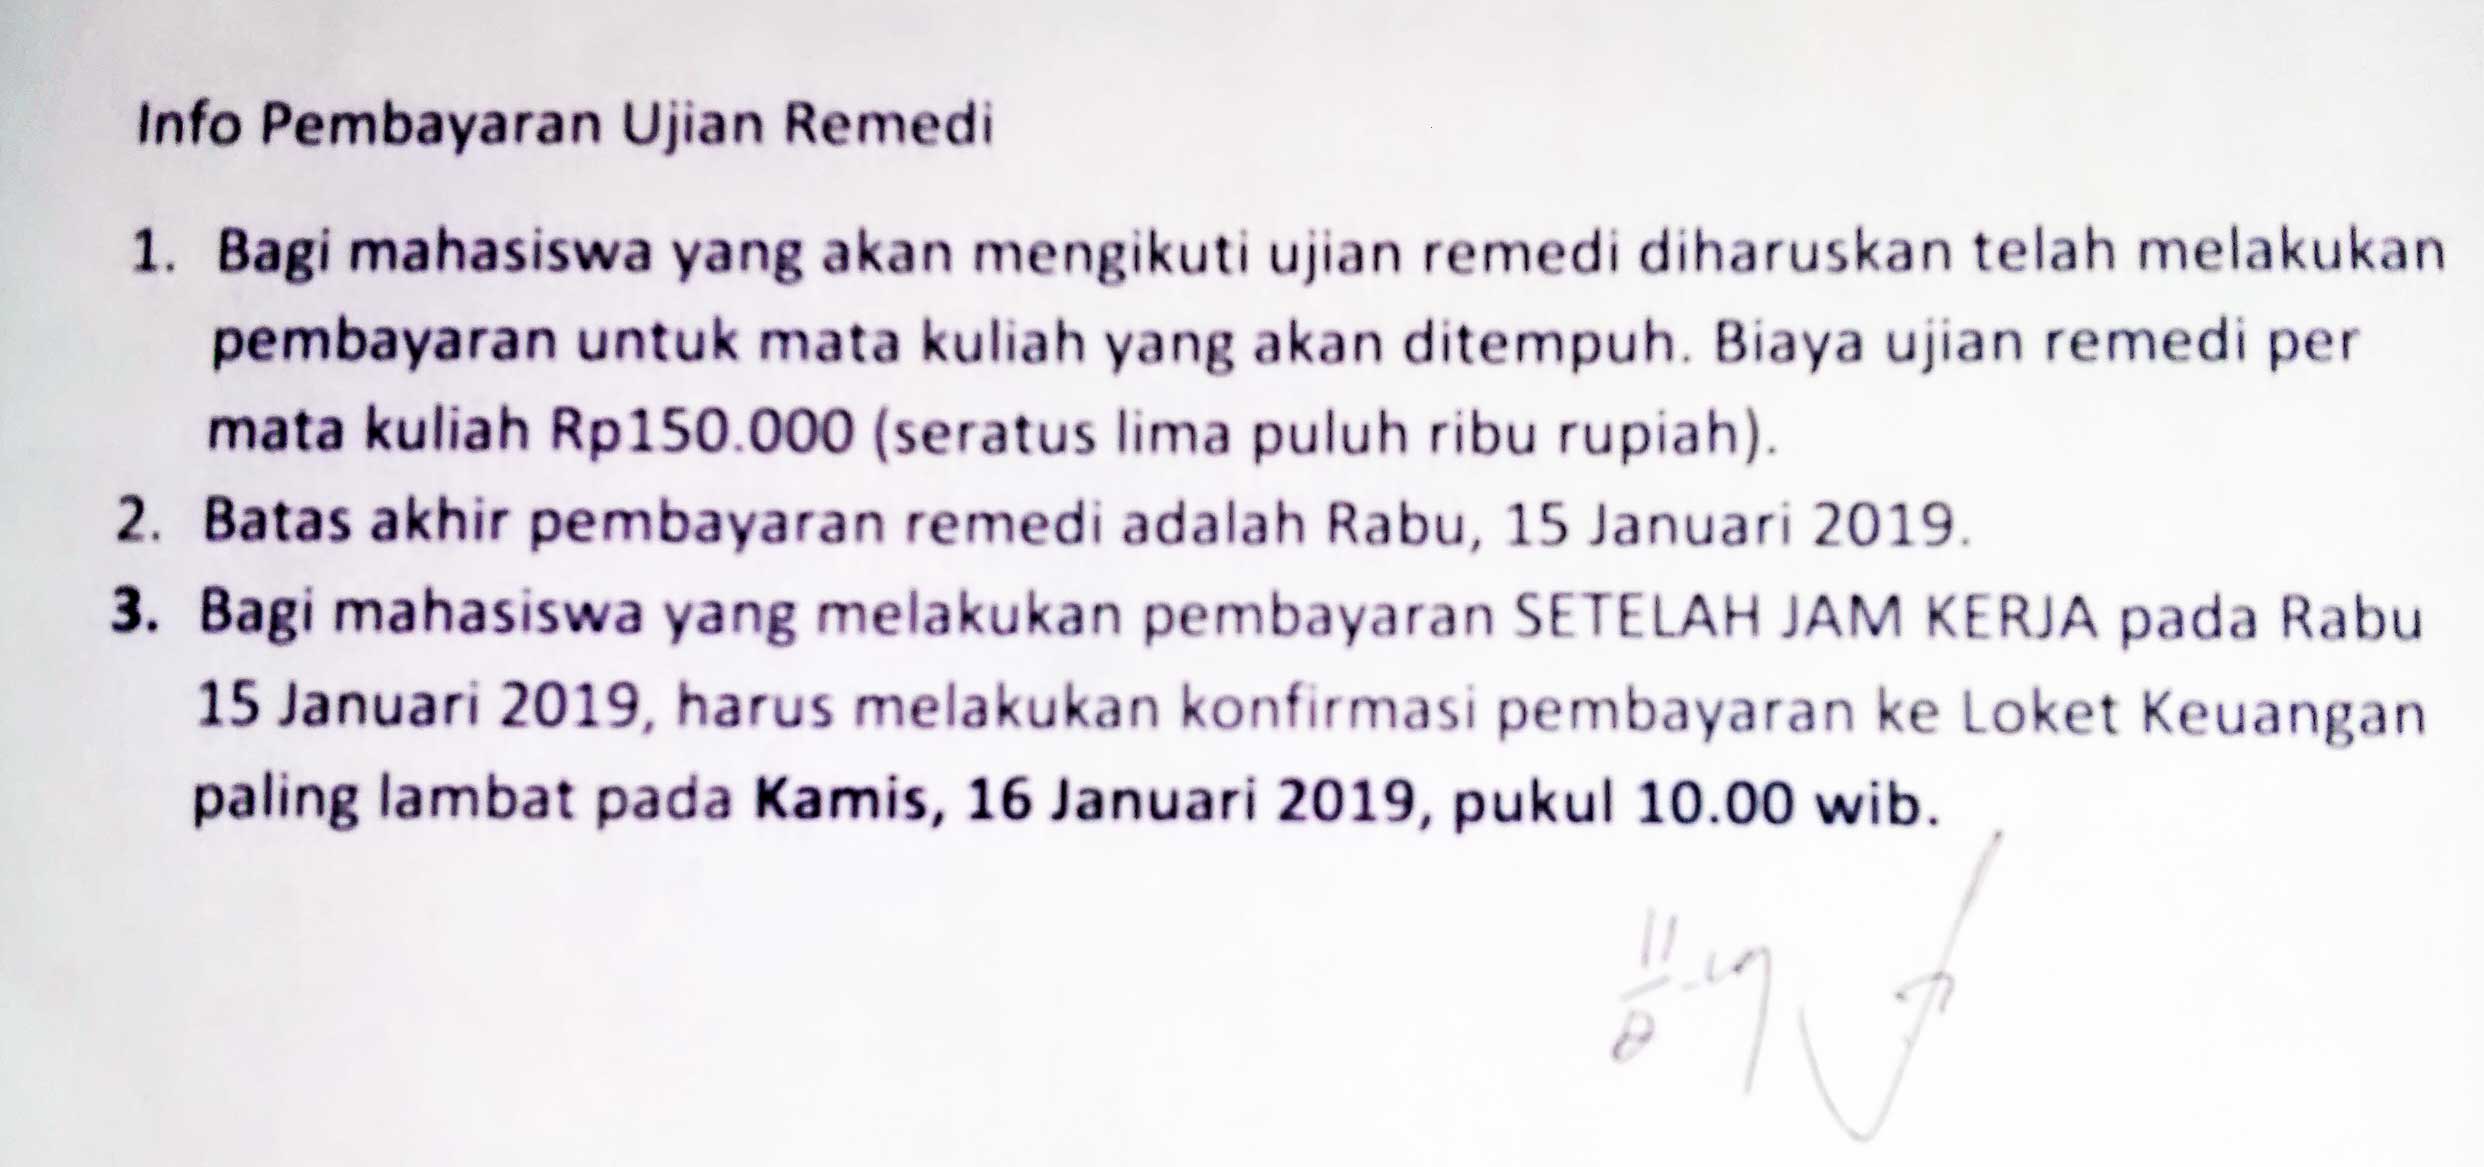 Info Pembayaran Ujian Remedi
1. Bagi mahasiswa yang akan mengikuti ujian remedi diharuskan telah melakukan
pembayaran untuk mata kuliah yang akan ditempuh. Biaya ujian remedi per
mata kuliah Rp150.000 (seratus lima puluh ribu rupiah).
2. Batas akhir pembayaran remedi adalah Rabu, 15 Januari 2019.
3. Bagi mahasiswa yang melakukan pembayaran SETELAH JAM KERJA pada Rabu
15 Januari 2019, harus melakukan konfirmasi pembayaran ke Loket Keuangan
paling lambat pada Kamis, 16 Januari 2019, pukul 10.00 wib.